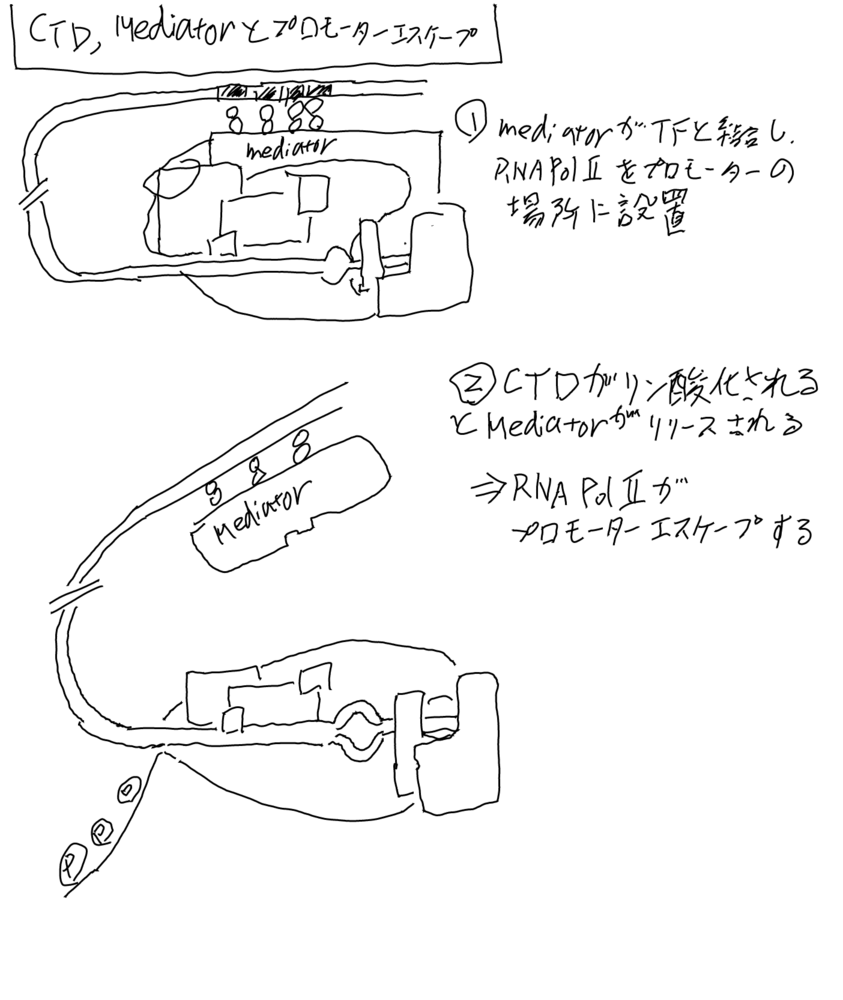 CTD, Mediatorとプロモーターエスケープ
mediator
① mediatorがTFと結合し
RNA Pol Ⅱをプロモーターの
場所に設置
② CTDがリン酸化される
とMediatorがリリースされる
⇒ RNA Pol Ⅱが
プロモーターエスケープする
Mediator
P
P
P